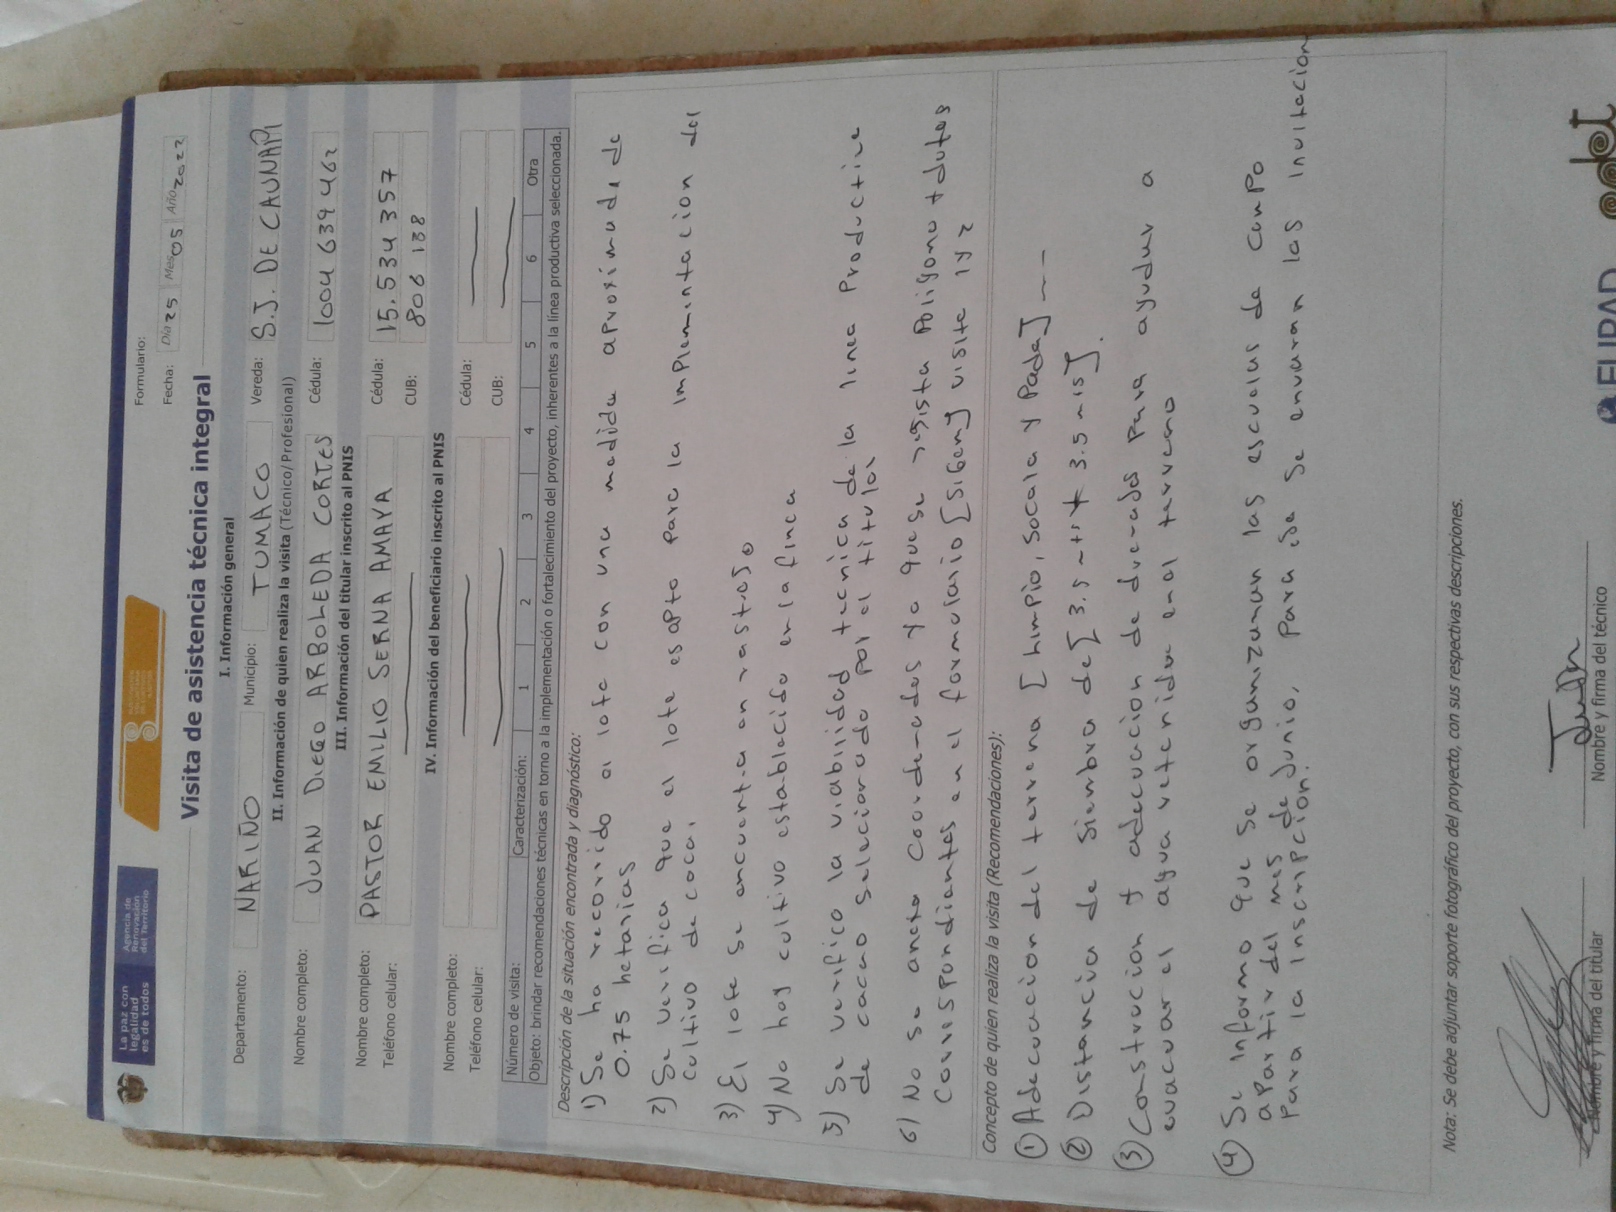 La paz con
legalidad
es de todos
Agencia de
Renovación
del Territorio
Formulario:
Fecha: Día 25 Mes 05 Año 2022
Visita de asistencia técnica integral
I. Información general
Departamento: NARIÑO Municipio: TUMACO Vereda: S.J. DE CAUNAPI
II. Información de quien realiza la visita (Técnico/Profesional)
Nombre completo: JUAN DIEGO ARBOLEDA CORTES Cédula: 1004 639 462
III. Información del titular inscrito al PNIS
Nombre completo: PASTOR EMILIO SERNA AMAYA Cédula: 15.534357
Teléfono celular: CUB: 806 188
IV. Información del beneficiario inscrito al PNIS
Nombre completo: Cédula:
Teléfono celular: CUB:
Número de visita: Caracterización: 1 2 3 4 5 6 Otra
Objeto: brindar recomendaciones técnicas en torno a la implementación o fortalecimiento del proyecto, inherentes a la línea productiva seleccionada.
Descripción de la situación encontrada y diagnóstico:
1) Se ha recorrido el lote con una medida aproximada de
0.75 hetarias
2) Se verifica que el lote es apto para la implementacion del
cultivo de cacao.
3) El lote se encuentra en rastrojo
4) No hay cultivo establecido en la finca
5) Se verifico la viabilidad tecnica de la linea productiva
de cacao seleccionado por el titular
6) No se anexo coordenadas ya que se registra poligono + datos
correspondientes en el formulario [sigen] visita 1 y 2
Concepto de quien realiza la visita (Recomendaciones):
① Adecuacion del terreno [Limpio, socala y Poda] ---
② Distancia de siembra de [3.5 mts * 3.5 mts].
③ Construcion y adecuacion de drenados para ayudar a
evacuar el agua retenida en el terreno
④ Se informo que se organizaran las escuelas de campo
apartir del mes de Junio, para eso se enviaran las invitacion
para la inscripcion.
Nota: Se debe adjuntar soporte fotográfico del proyecto, con sus respectivas descripciones.
Nombre y firma del titular
Nombre y firma del técnico
ELIPAD